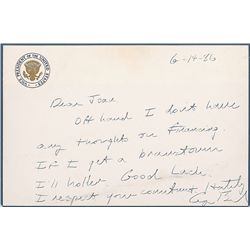 VICE PRESIDENT OF THE UNITED STATES
6-14-86
Dear Joan
Off hand I don't have
any thoughts on Financing.
If I get a brainstorm
I'll holler. Good Luck.
I respect your commitment